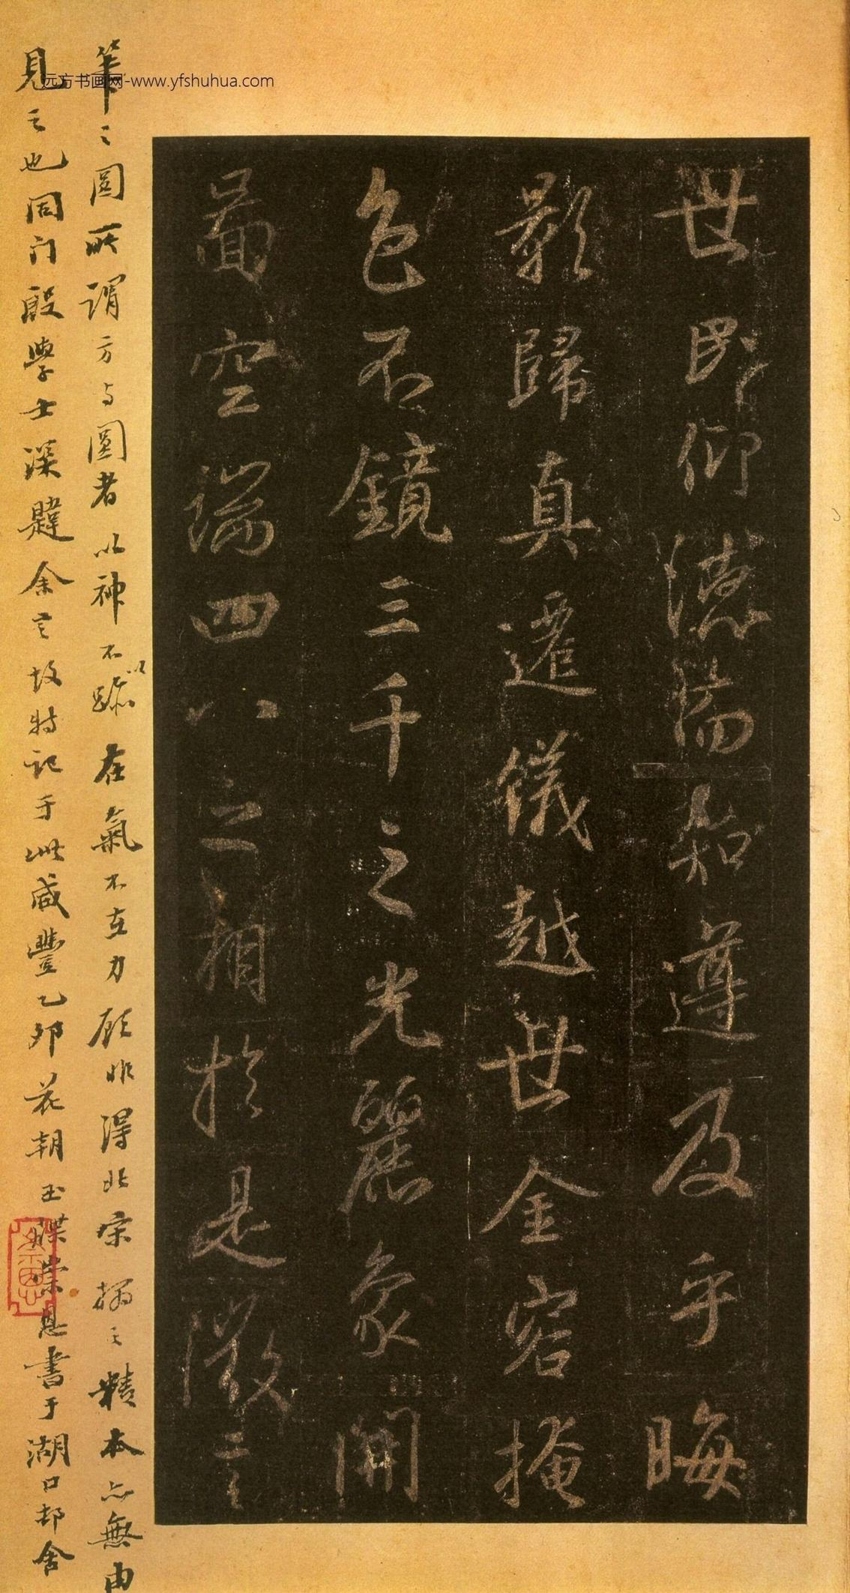 远方书画网-www.yfshuhua.com
世民仰德而知遵及乎晦
影歸真遷儀越世金容掩
色不鏡三千之光麗象開
啚空端四八之相於是微言
筆之圓所謂方与圓者以神不以跡在氣不在力顧非得北宋搨之精本亦無由
見之也同门殷學士深韙余言故特記于此咸豐乙卯花朝玉牒崇恩書于湖口邨舍
崇恩